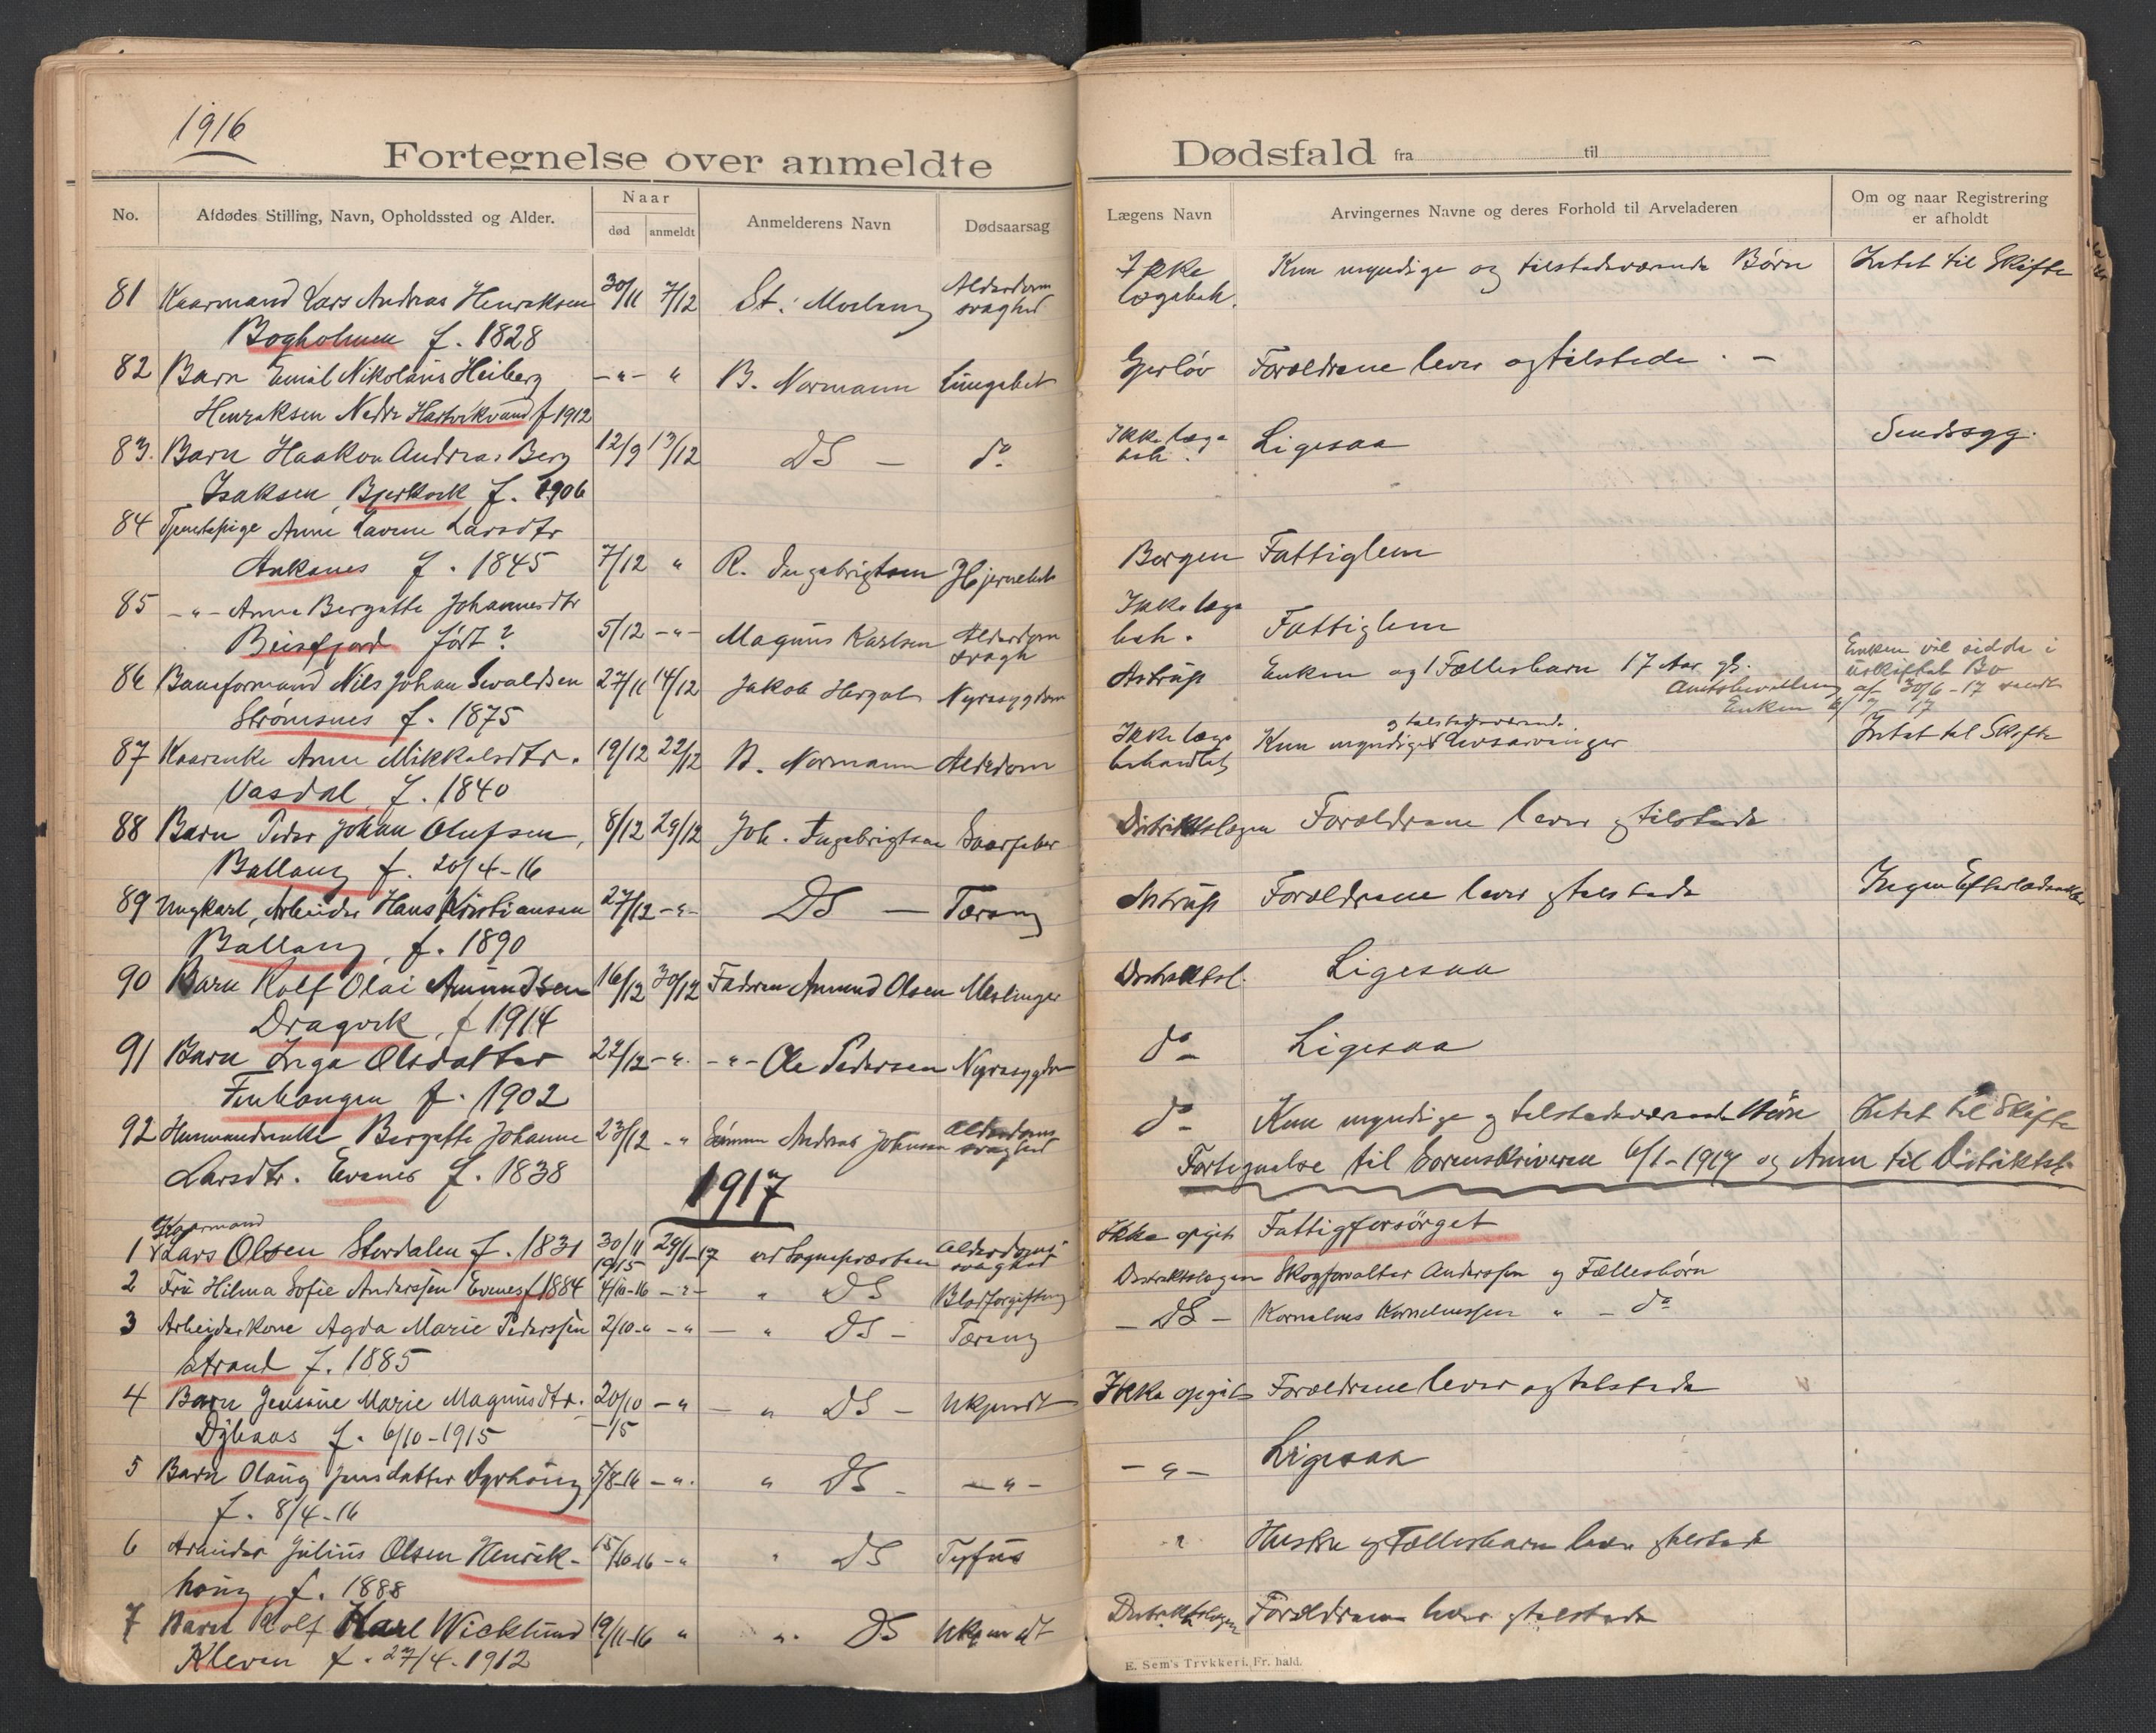 1916
Fortegnelse over anmeldte Dødsfald fra til
No. Afdødes Stilling, Navn, Opholdssted og Alder. Naar død anmeldt Anmelderens Navn Dødsaarsag Lægens Navn Arvingernes Navne og deres Forhold til Arveladeren Om og naar Registrering er afholdt
81 Kaarmand Lars Andreas Henriksen 30/11 7/12 St. Alderdom Ikke Kun myndige og tilstedeværende Børn Intet til Skifte
Bogholmen f. 1828 svaghed lægebeh.
82 Barn Emil Nikoläus Heiberg -"- " B. Normann Lungebet Gjerløv Forældrene lever og tilstede. -
Henriksen Nedre Hartvikvand f 1912
83. Barn Haakon Andreas Berg 12/9 13/12 DS - do Ikke læge beh. Ligesaa Sindssyg.
Isaksen, Bjerkvik f. 1906
84 Tjenestepige Anne Lavine Larsdtr
Ankenes f. 1845 7/12 " R. Ingebrigtsen Hjernebet Borgen Fattiglem
85 -"- Anne Bergette Johannesdtr Ikke læge
Beisfjord født? 5/12 -"- Magnus Karlsen Alderdom svagh beh. Fattiglem
86 Baneformand Nils Johan Sivaldsen 27/11 14/12 Jakob Nyresygdom Astrup Enken og 1 Fællesbarn 17 Aar gl. Enken vil sidde i uskiftet Bo
Strømsnes f. 1875 Amtsbevilling af 30/6-17 sendt Enken 6/7-17
87 Kaarenke Anne Mikkelsdtr. 19/12 22/12 B. Normann Alderdom Ikke læge behandlet Kun myndige og tilstedeværende Livsarvinger Intet til Skifte
Vasdal, f. 1840
88 Barn Peder Johan Olufsen, 8/12 29/12 Joh. Ingebrigtsen Distriktslægen Forældrene lever og tilstede
Ballang f. 20/4-16
89 Ungkarl, Arbeider Hans Kristiansen 27/12 -"- DS - Tæring Astrup Forældrene lever og tilstede Ingen Efterladenskaber
Ballang, f. 1890
90 Barn Rolf Olai Amundsen 16/12 30/12 Faderen Amund Olsen Meslinger Distriktsl. Ligesaa
Dragvik, f 1914
91 Barn Inga Olsdatter 22/12 -". -"- Ole Pedersen Nyresygdom do Ligesaa
f. 1902
92 Husmandsenke Bergette Johanne 23/12 -" Sønnen Andreas Johnsen Alderdoms svaghed do Kun myndige og tilstedeværende Børn Intet til Skifte
Larsdtr. Evenes f. 1838 Fortegnelse til Sorenskriveren 6/1-1917 og Anm til Distriktsl.
1917
Kaarmand
1 Lars Olsen Stordalen f. 1831 30/11 1915 29/1-17 ved Sognepræsten Alderdoms svaghed Ikke opgit Fattigforsørget
2 Fru Hilma Sofie Anderssen Evenes f 1884 4/10-16 -"- " DS Blodforgiftning Distriktslægen Skogforvalter Anderssen og Fællesbørn
3 Arbeiderkone Agda Marie Pederssen 2/10-" -"- " DS - Tæring - DS - Kornelius Korneliussen " - do
Strand f. 1885
4 Barn Jensine Marie Magnusdtr. 20/10 -15 -" - " DS - Ukjendt Ikke opgit Forældrene lever og tilstede
Dybaas f. 6/10-1915
5 Barn Olaug Jensdatter Dyrhaug 5/8-16 -". " DS - -"- -"- Ligesaa
f. 8/4-16
6 Arbeider Julius Olsen Henrik- 15/10-16 -" " DS Tyfus " Hustru og Fællesbarn lever og tilstede
haug f. 1888
7 Barn Rolf Karl Wicklund 19/11-16 " " DS Ukjendt Distriktslægen Forældrene lever og tilstede
Kleven f. 27/4-1912
E. Sem's Trykkeri, Fr. hald.